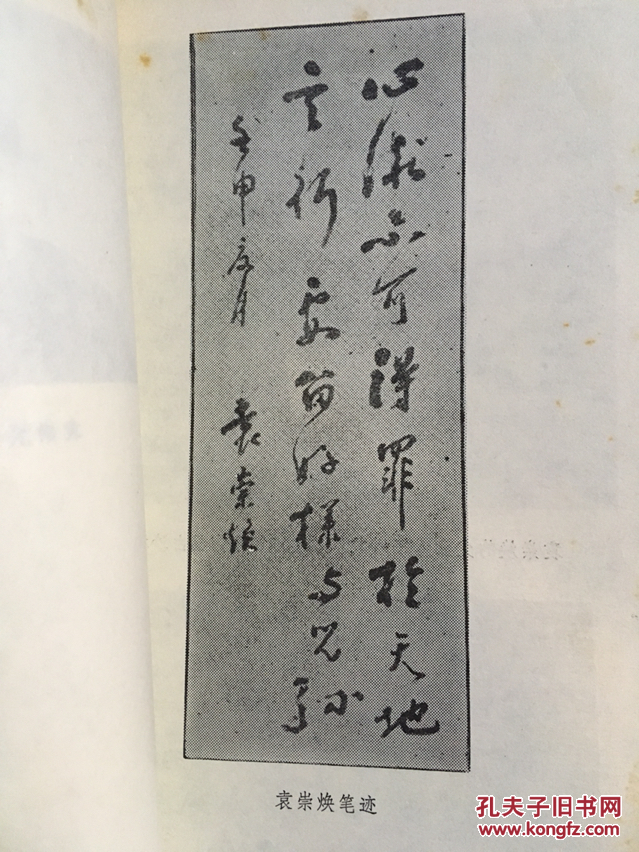 心術不可得罪於天地
言行要留好樣与兒孫
壬申夏月 袁崇煥
袁崇焕笔迹
孔夫子旧书网
www.kongfz.com